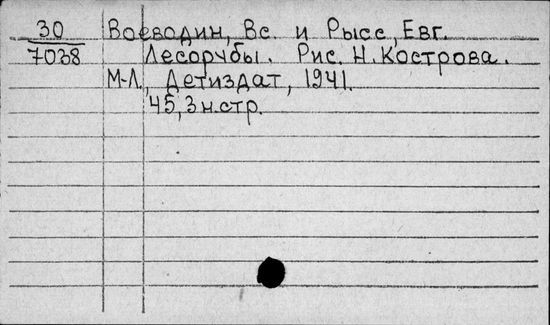 30 Воеводин, Вс. и Рысс, Евг.
7038 Лесорубы. Рис. Н. Кострова.
М-Л., Детиздат, 1941.
45, 3 н. стр.